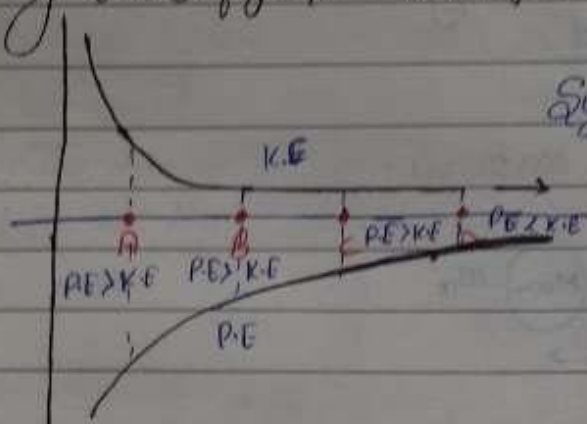 K.E
A B C PE>K.E D PE<K.E
P.E>K.E P.E>K.E
P.E